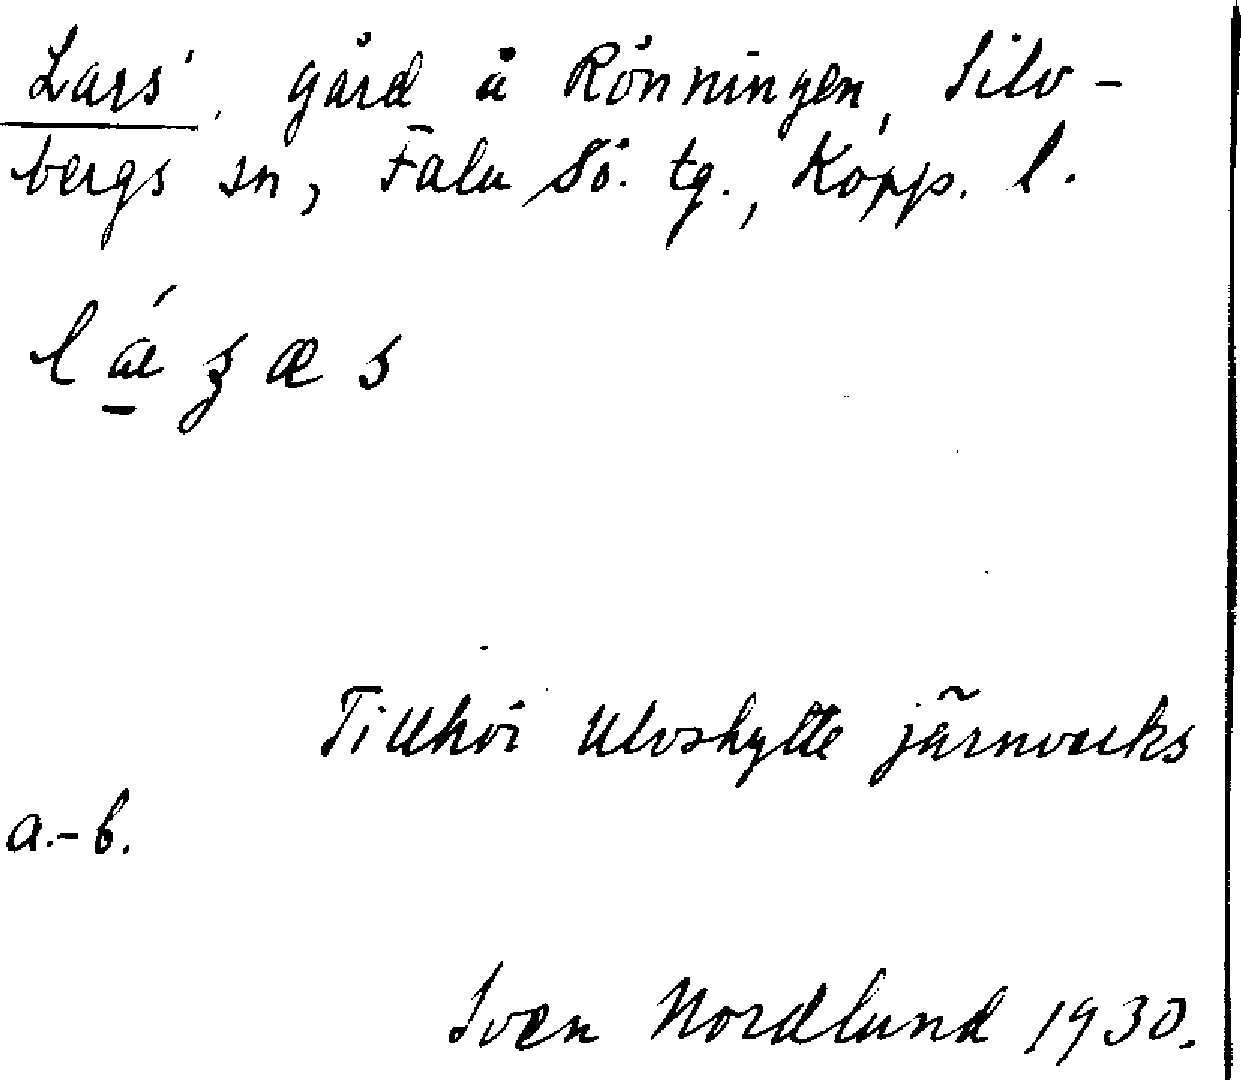 Lars', gård å Rönningen, Silv-
bergs sn, Falu Sö. tg., Kopp. l.
lǽ̱ʂæs
Tillhör Ulvshytte järnverks
a.-b.
Sven Nordlund 1930.